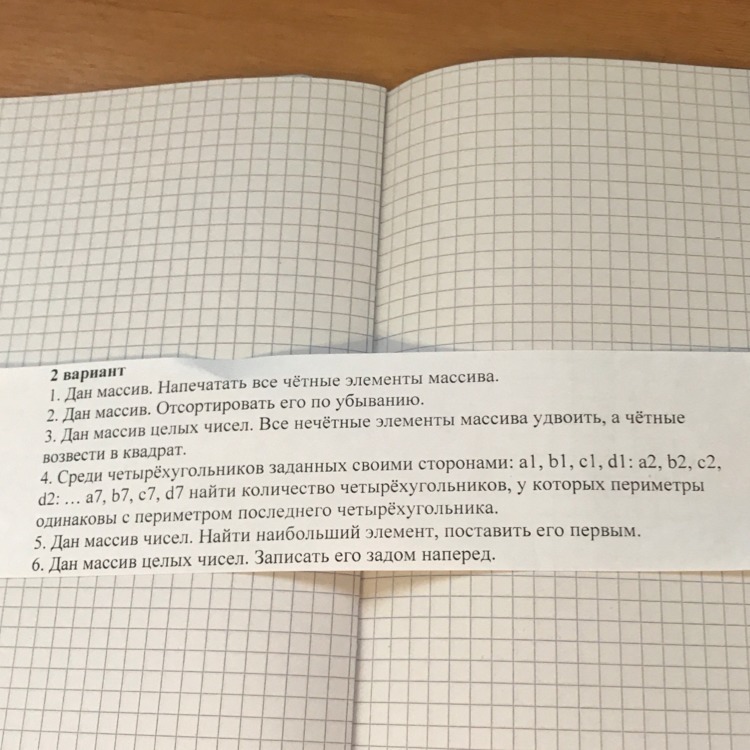 2 вариант
1. Дан массив. Напечатать все чётные элементы массива.
2. Дан массив. Отсортировать его по убыванию.
3. Дан массив целых чисел. Все нечётные элементы массива удвоить, а чётные
возвести в квадрат.
4. Среди четырёхугольников заданных своими сторонами: a1, b1, c1, d1: a2, b2, c2,
d2: ... a7, b7, c7, d7 найти количество четырёхугольников, у которых периметры
одинаковы с периметром последнего четырёхугольника.
5. Дан массив чисел. Найти наибольший элемент, поставить его первым.
6. Дан массив целых чисел. Записать его задом наперед.